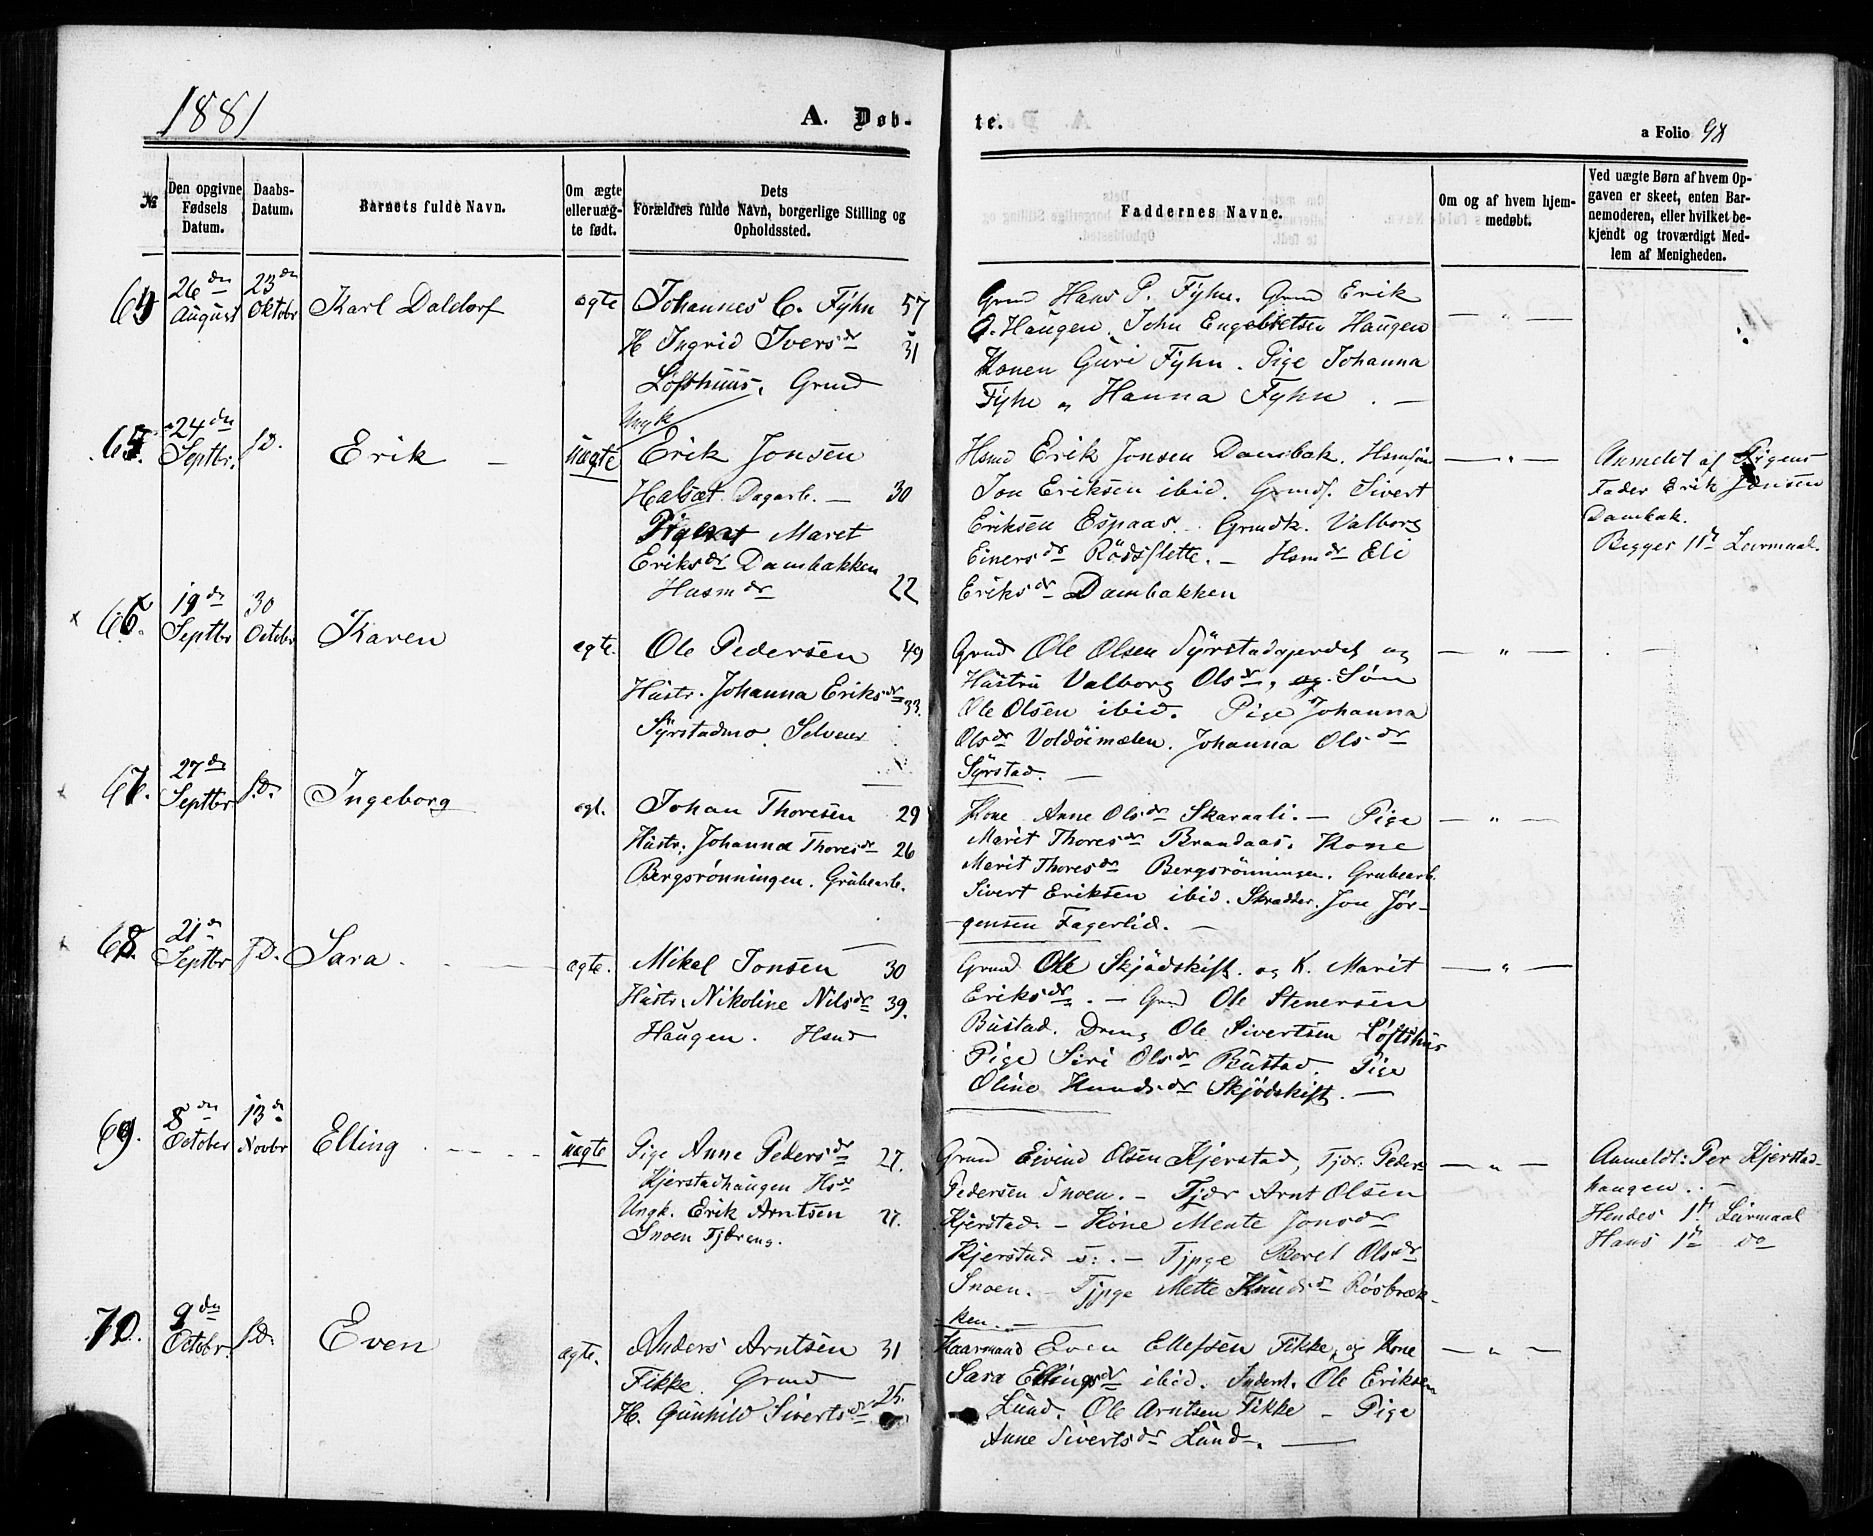 1881
A. Døb-
te.
a Folio 98
№
Den opgivne Fødsels Datum.
Daabs-Datum.
Barnets fulde Navn.
Om ægte eller uæg-te født.
Dets Forældres fulde Navn, borgerlige Stilling og Opholdssted.
Faddernes Navne.
Om og af hvem hjem-medøbt.
Ved uægte Børn af hvem Op-gaven er skeet, enten Bar-nemoderen, eller hvilket be-kjendt og troværdigt Med-lem af Menigheden.
64
26 dn August
23 dn Oktobr
Karl Daldorf
ægte
Johannes C. Fÿhn 57
H Ingrid Ivers dr 31
Lofthuus, Grmd
Grmd Hans P. Fÿhn. Grmd Erik
O. Haugen. John Engebretsen Haugen
Konen Guri Fÿhn. Pige Johanna
Fÿhn „ Hanna Fyhn. —
— „ —
65.
24 dn Septbr.
s.D.
Erik —
uægte
Ungk
Erik Jonsen
Halsæt. Dagarb. — 30
Pigen Maret
Eriks dr Dambakken
Husm dr 22
Hsmd Erik Jonsen Dambak. Hsmsøn
Jon Eriksen ibid. Grmds. Sivert
Eriksen Espaas. Grmdk. Valborg
Einers dr Rödsslette. — Hsm dr Eli
Eriks dr Dambakken
— „ —
Anmeldt af Pigens
Fader Erik Jonsen
Dambak.
Begges 1ste Leirmaal.
66.
19 dn Septbr
30 Octobr
Karen
ægte.
Ole Pedersen 49
Hustr. Johanna Eriks dr 33.
Sÿrstadmo. Selveier
Grmd Ole Olsen Sÿrstadgjerdet og
Hustru Valborg Ols dr, og Søn
Ole Olsen ibid. Pige Johanna
Ols dr Voldöimælen. Johanna Ols dr
Sÿrstad. —
— „ —
67.
27 dn Septbr
s.D.
Ingeborg
ægt.
Johan Thoresen 29
Hustr. Johanna Thores dr 26
Bergsrønningen. Grubearb.
Kone Anne Ols dr Skaraali. — Pige
Marit Thores dr Brandaas. Kone
Marit Thores dr Bergsrönningen. Grubearb.
Sivert Eriksen ibid. Skrædder Jon Jör-
gensen Fagerlid. —
— „ —
68.
21 dn Septbr
s.D.
Sara.
ægte.
Mikal Jonsen 30
Hustr. Nikoline Nils dr 39.
Haugen. Hsmd
Grmd Ole Skjödskift. og K. Marit
Eriks dr. — Grmd Ole Stenersen
Bustad. Dreng Ole Sivertsen Løftshus
Pige Siri Ols dr Bustad. Pige
Oline Knuds dr Skjödskift. —
— „ —
69.
8 dn October
13 d. Novbr
Elling
uægte
Pige Anne Peders dr 27.
Kjerstadhaugen Hs dr
Ungk. Erik Arntsen 27.
Snoen Tjdreng.
Grmd Eivind Olsen Kjerstad, Tjdr. Peder
Pedersen Snoen. — Tjdr Arnt Olsen
Kjerstad. — Kone Mente Jons dr
Kjerstad — Tjpge Beret Ols dr
Snoen. — Tjpge Mette Knuds dr Rösbræk-
ken. —
— „ —
Anmeldt: Per Kjerstad-
haugen. —
Hendes 1ste Leirmaal
Hans 1ste do
70.
9 dn Octobr.
s.D.
Even
ægte.
Anders Arntsen 31
Fikke. Grmd
H. Gunhild Siverts dr 25.
Kaarmand Even Ellefsen Fikke, og Kone
Sara Ellings dr ibid. Inderst. Ole Eriksen
Lund. Ole Arntsen Fikke — Pige
Anne Siverts dr Lund. —
— „ —